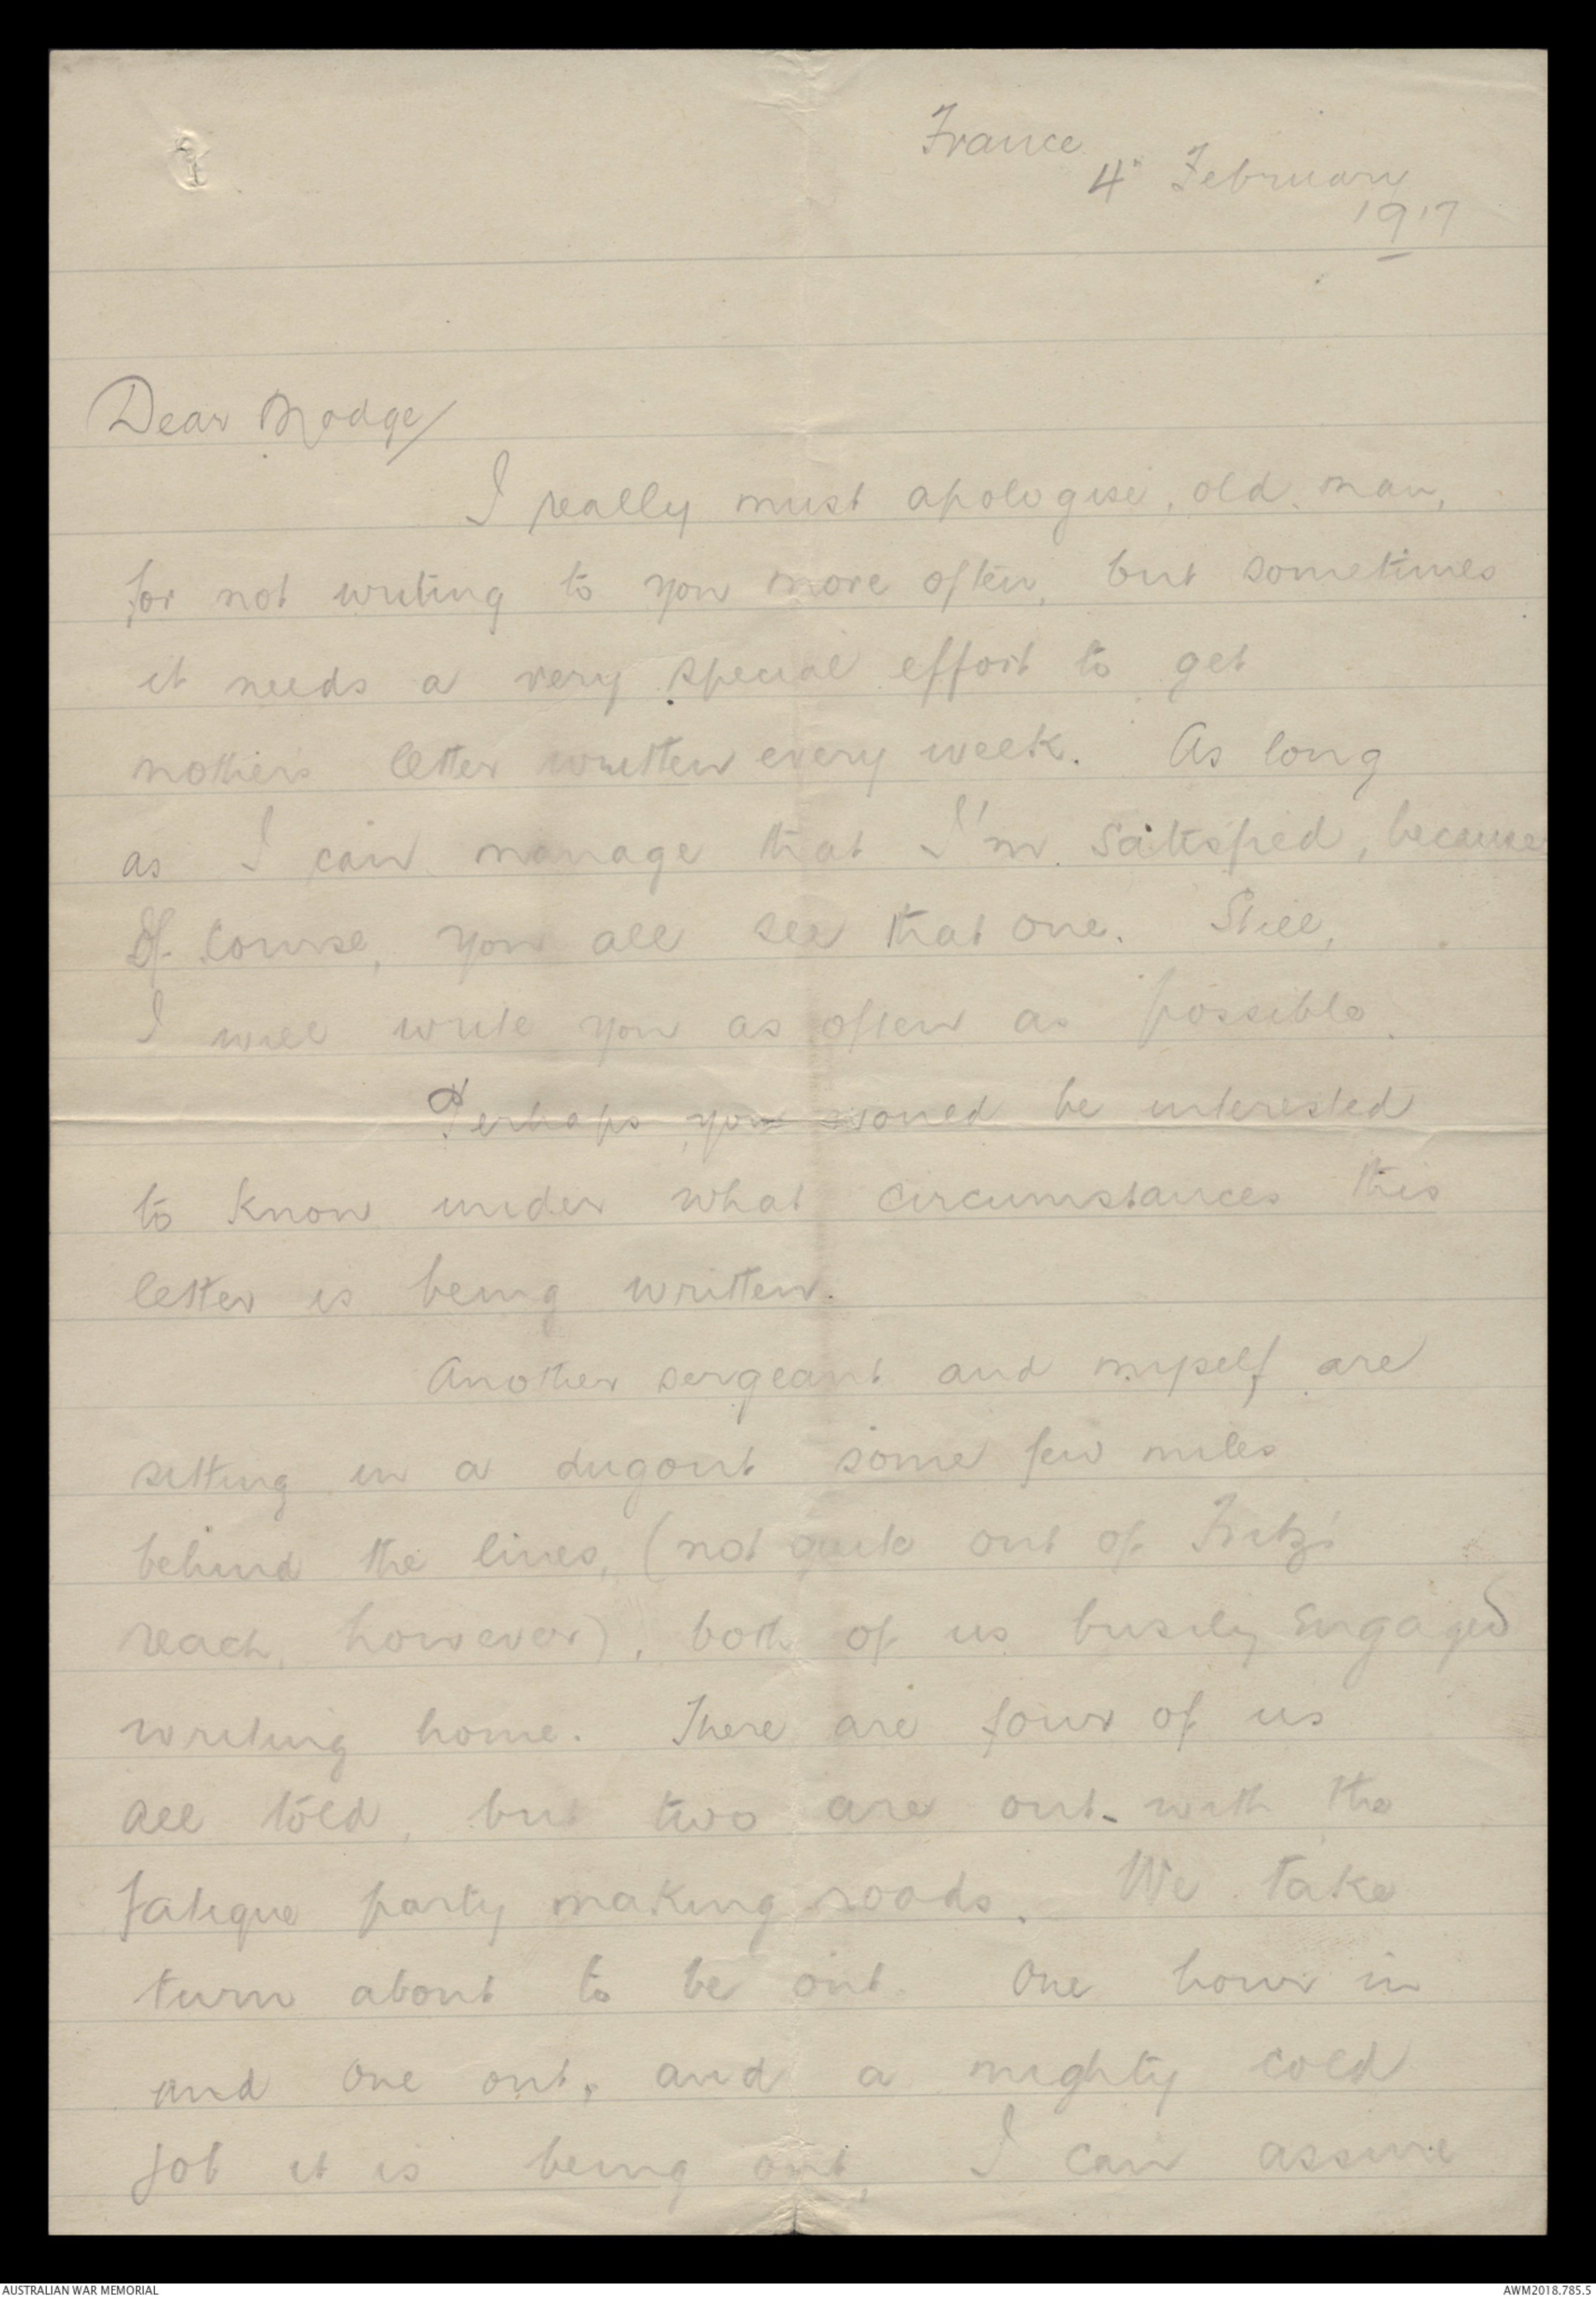 France
4" February
1917
Dear Modge/
I really must apologise, old man,
for not writing to you more often, but sometimes
it needs a very special effort to get
mothers letter written every week. As long
as I can manage that I'm satisfied, because
Of course, you all see that one. Still,
I will write you as often as possible.
Perhaps you would be interested
to know under what circumstances this
letter is being written.
Another sergeant and myself are
sitting in a dugout some few miles
behind the lines, (not quite out of Fritz's
reach, however), both of us busily engaged
writing home. There are four of us
all told, but two are out with the
fatigue party making roads. We take
turn about to be out. One hour in
and one out, and a mighty cold
job it is being out, I can assure
AUSTRALIAN WAR MEMORIAL
AWM2018.785.5